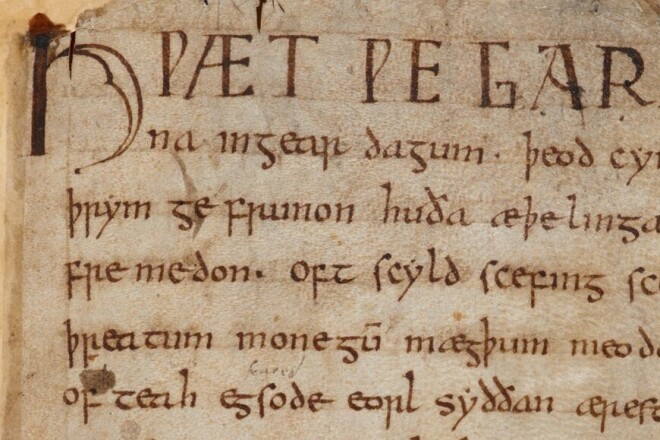 HǷÆT ǷE GAR
na ingear dagum. þeod cy
þrym ge frunon huða æþelinga
fremedon. oft scyld scefing sc
þreatum monegū mægþum meodo
of teah egsode eorl syððan ærest